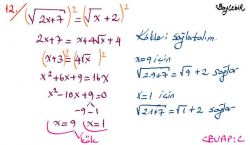 12/ (√2x+7)² = (√x + 2)²
2x+7 = x+4√x+4
(x+3)² = (4√x)²
x²+6x+9 = 16x
x²-10x+9=0
-9 -1
x=9 x=1
kök
Kökleri sağlatalım.
x=9 için
√2.9+7 = √9 + 2 sağlar
x=1 için
√2.1+7 = √1 + 2 sağlar
CEVAP: C